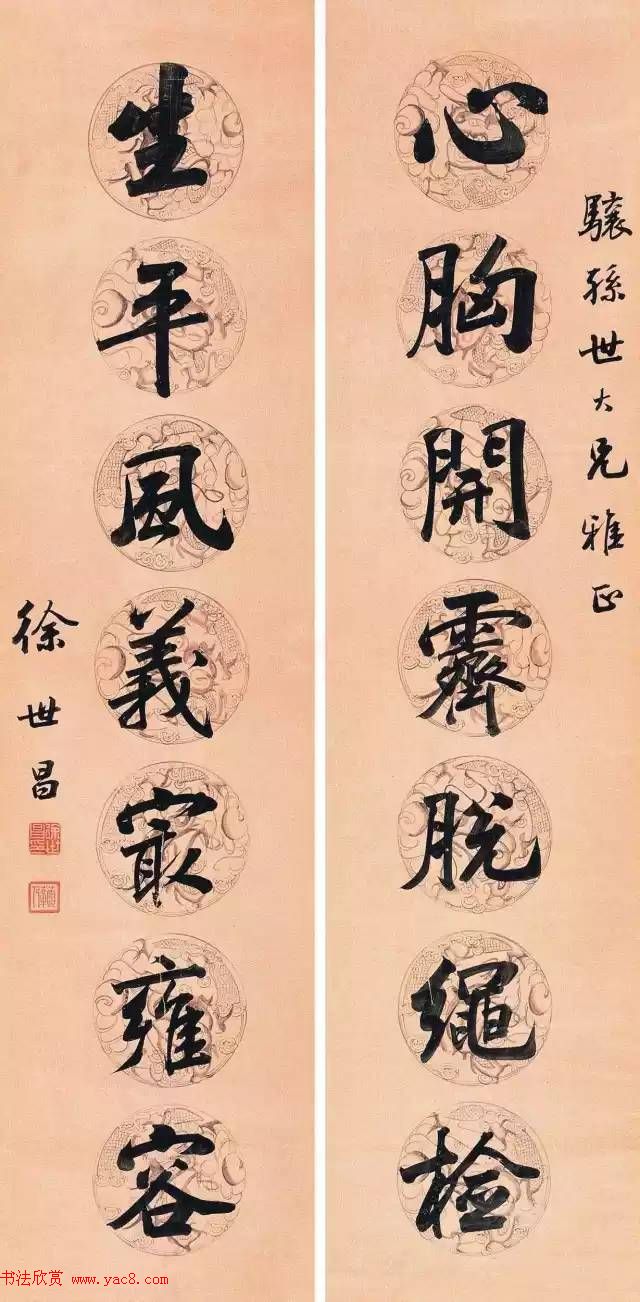 驤孫世大兄雅正
心胸開霽脫繩檢
生平風義冣雍容
徐世昌
书法欣赏 www.yac8.com